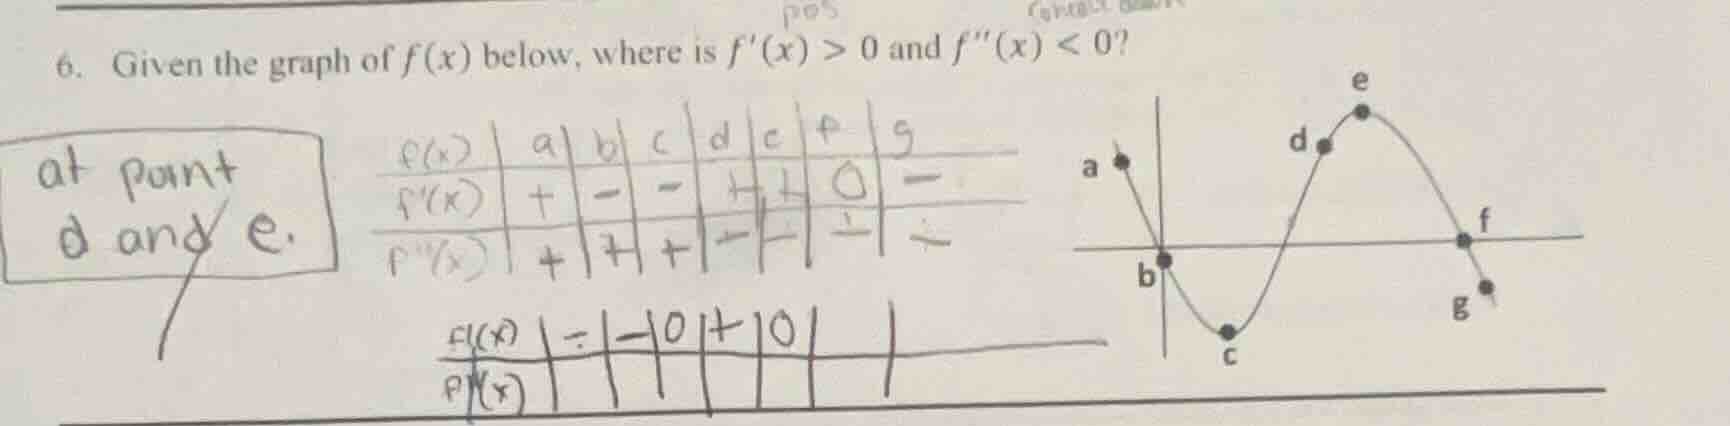 pos
6. Given the graph of f(x) below, where is f'(x) > 0 and f''(x) < 0?
at point
d and e.
f(x) a b c d e f g
f'(x) + - - + + 0 -
f''(x) + + + - - - -
f'(x) - - 0 + 0
f''(x)
e
d
a
f
b
g
c